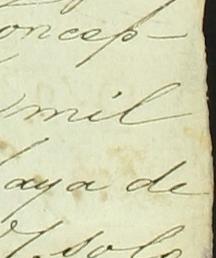 oncep-
mil
laya de
solo